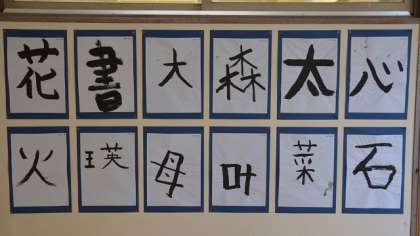 花 書 大 森 太 心
火 瑛 母 叶 菜 石